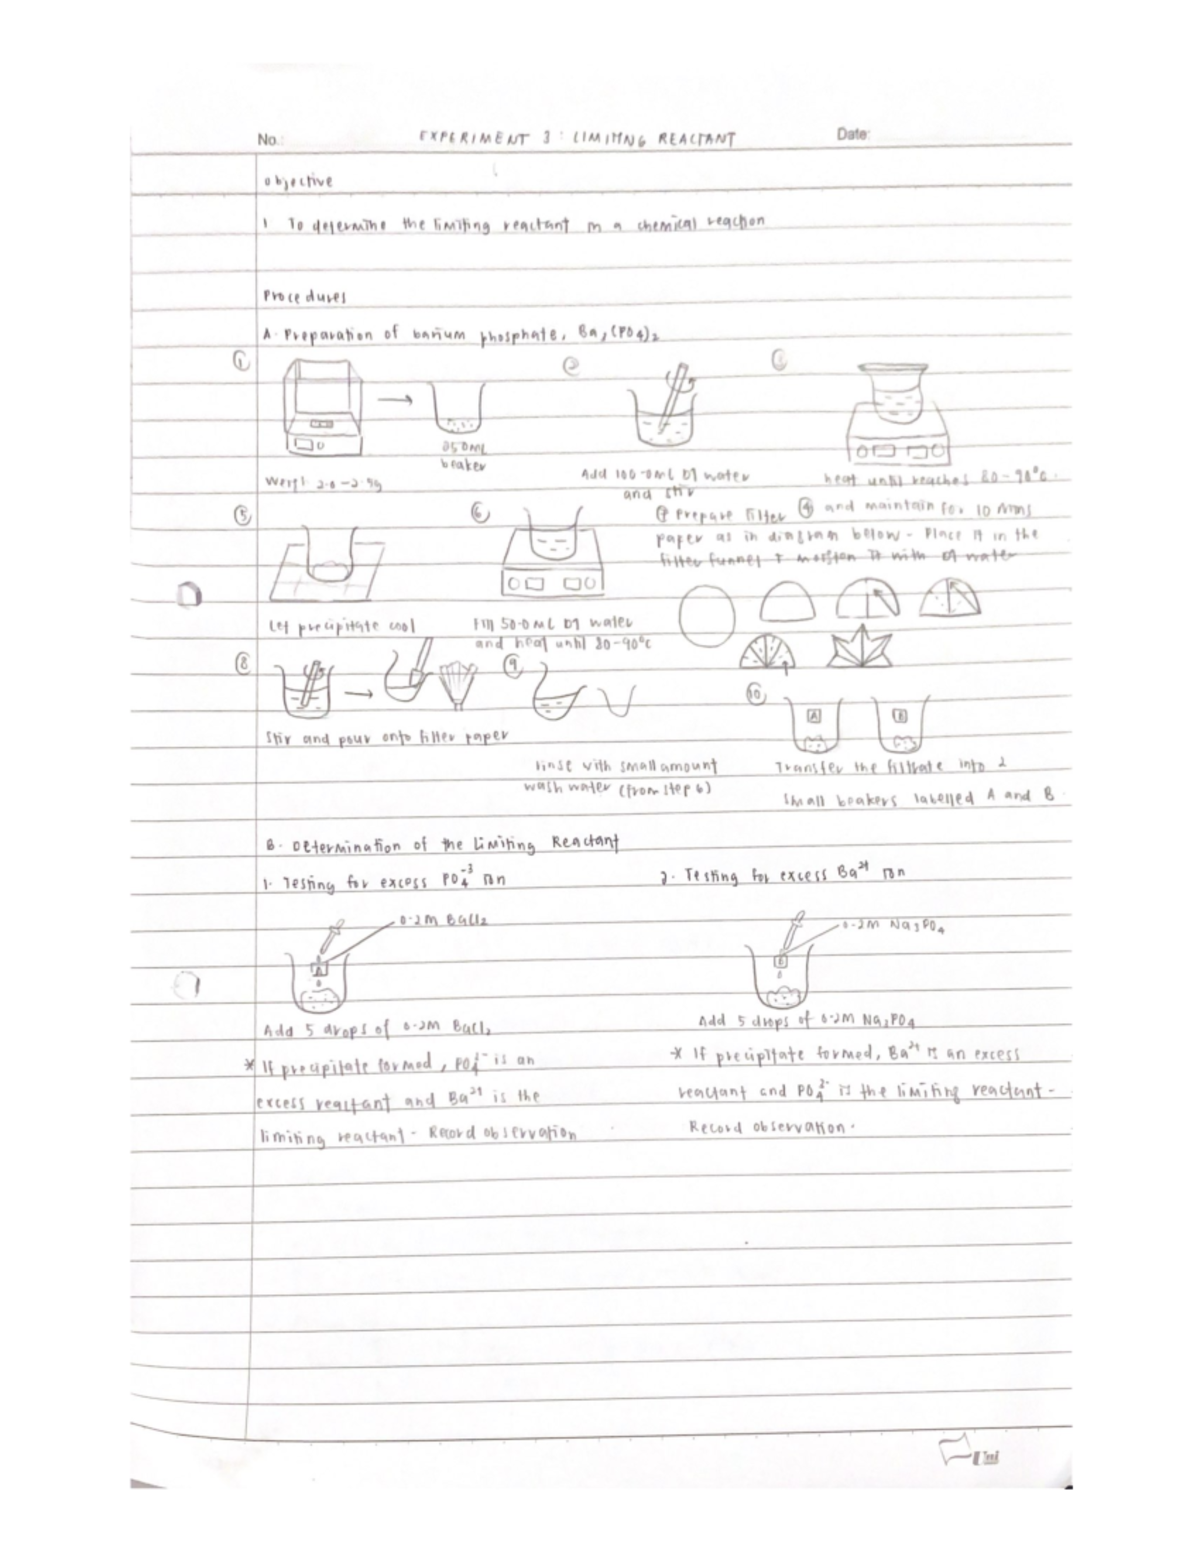 No.:
EXPERIMENT 3 : LIMITING REACTANT
Date:
Objective
1 To determine the limiting reactant in a chemical reaction
Procedures
A. Preparation of barium phosphate, Ba3(PO4)2
①
②
③
250mL
beaker
Weigh 2.0-2.5g
Add 100.0mL DI water
and stir
heat until reaches 80-90°C.
④ and maintain for 10 mins
⑤
Let precipitate cool
⑥
Fill 50.0mL DI water
and heat until 80-90°C
⑦ Prepare filter
paper as in diagram below. Place it in the
filter funnel & moisten it with DI water
⑧
Stir and pour onto filter paper
⑨
rinse with small amount
wash water (from step 6)
⑩
A
B
Transfer the filtrate into 2
small beakers labelled A and B.
B. Determination of the Limiting Reactant
1. Testing for excess PO4^-3 ion
2. Testing for excess Ba^2+ ion
0.2M BaCl2
A
0.2M Na3PO4
B
Add 5 drops of 0.2M BaCl2
* If precipitate formed, PO4^2- is an
excess reactant and Ba^2+ is the
limiting reactant - Record observation
Add 5 drops of 0.2M Na3PO4
* If precipitate formed, Ba^2+ is an excess
reactant and PO4^2- is the limiting reactant -
Record observation.
Uni